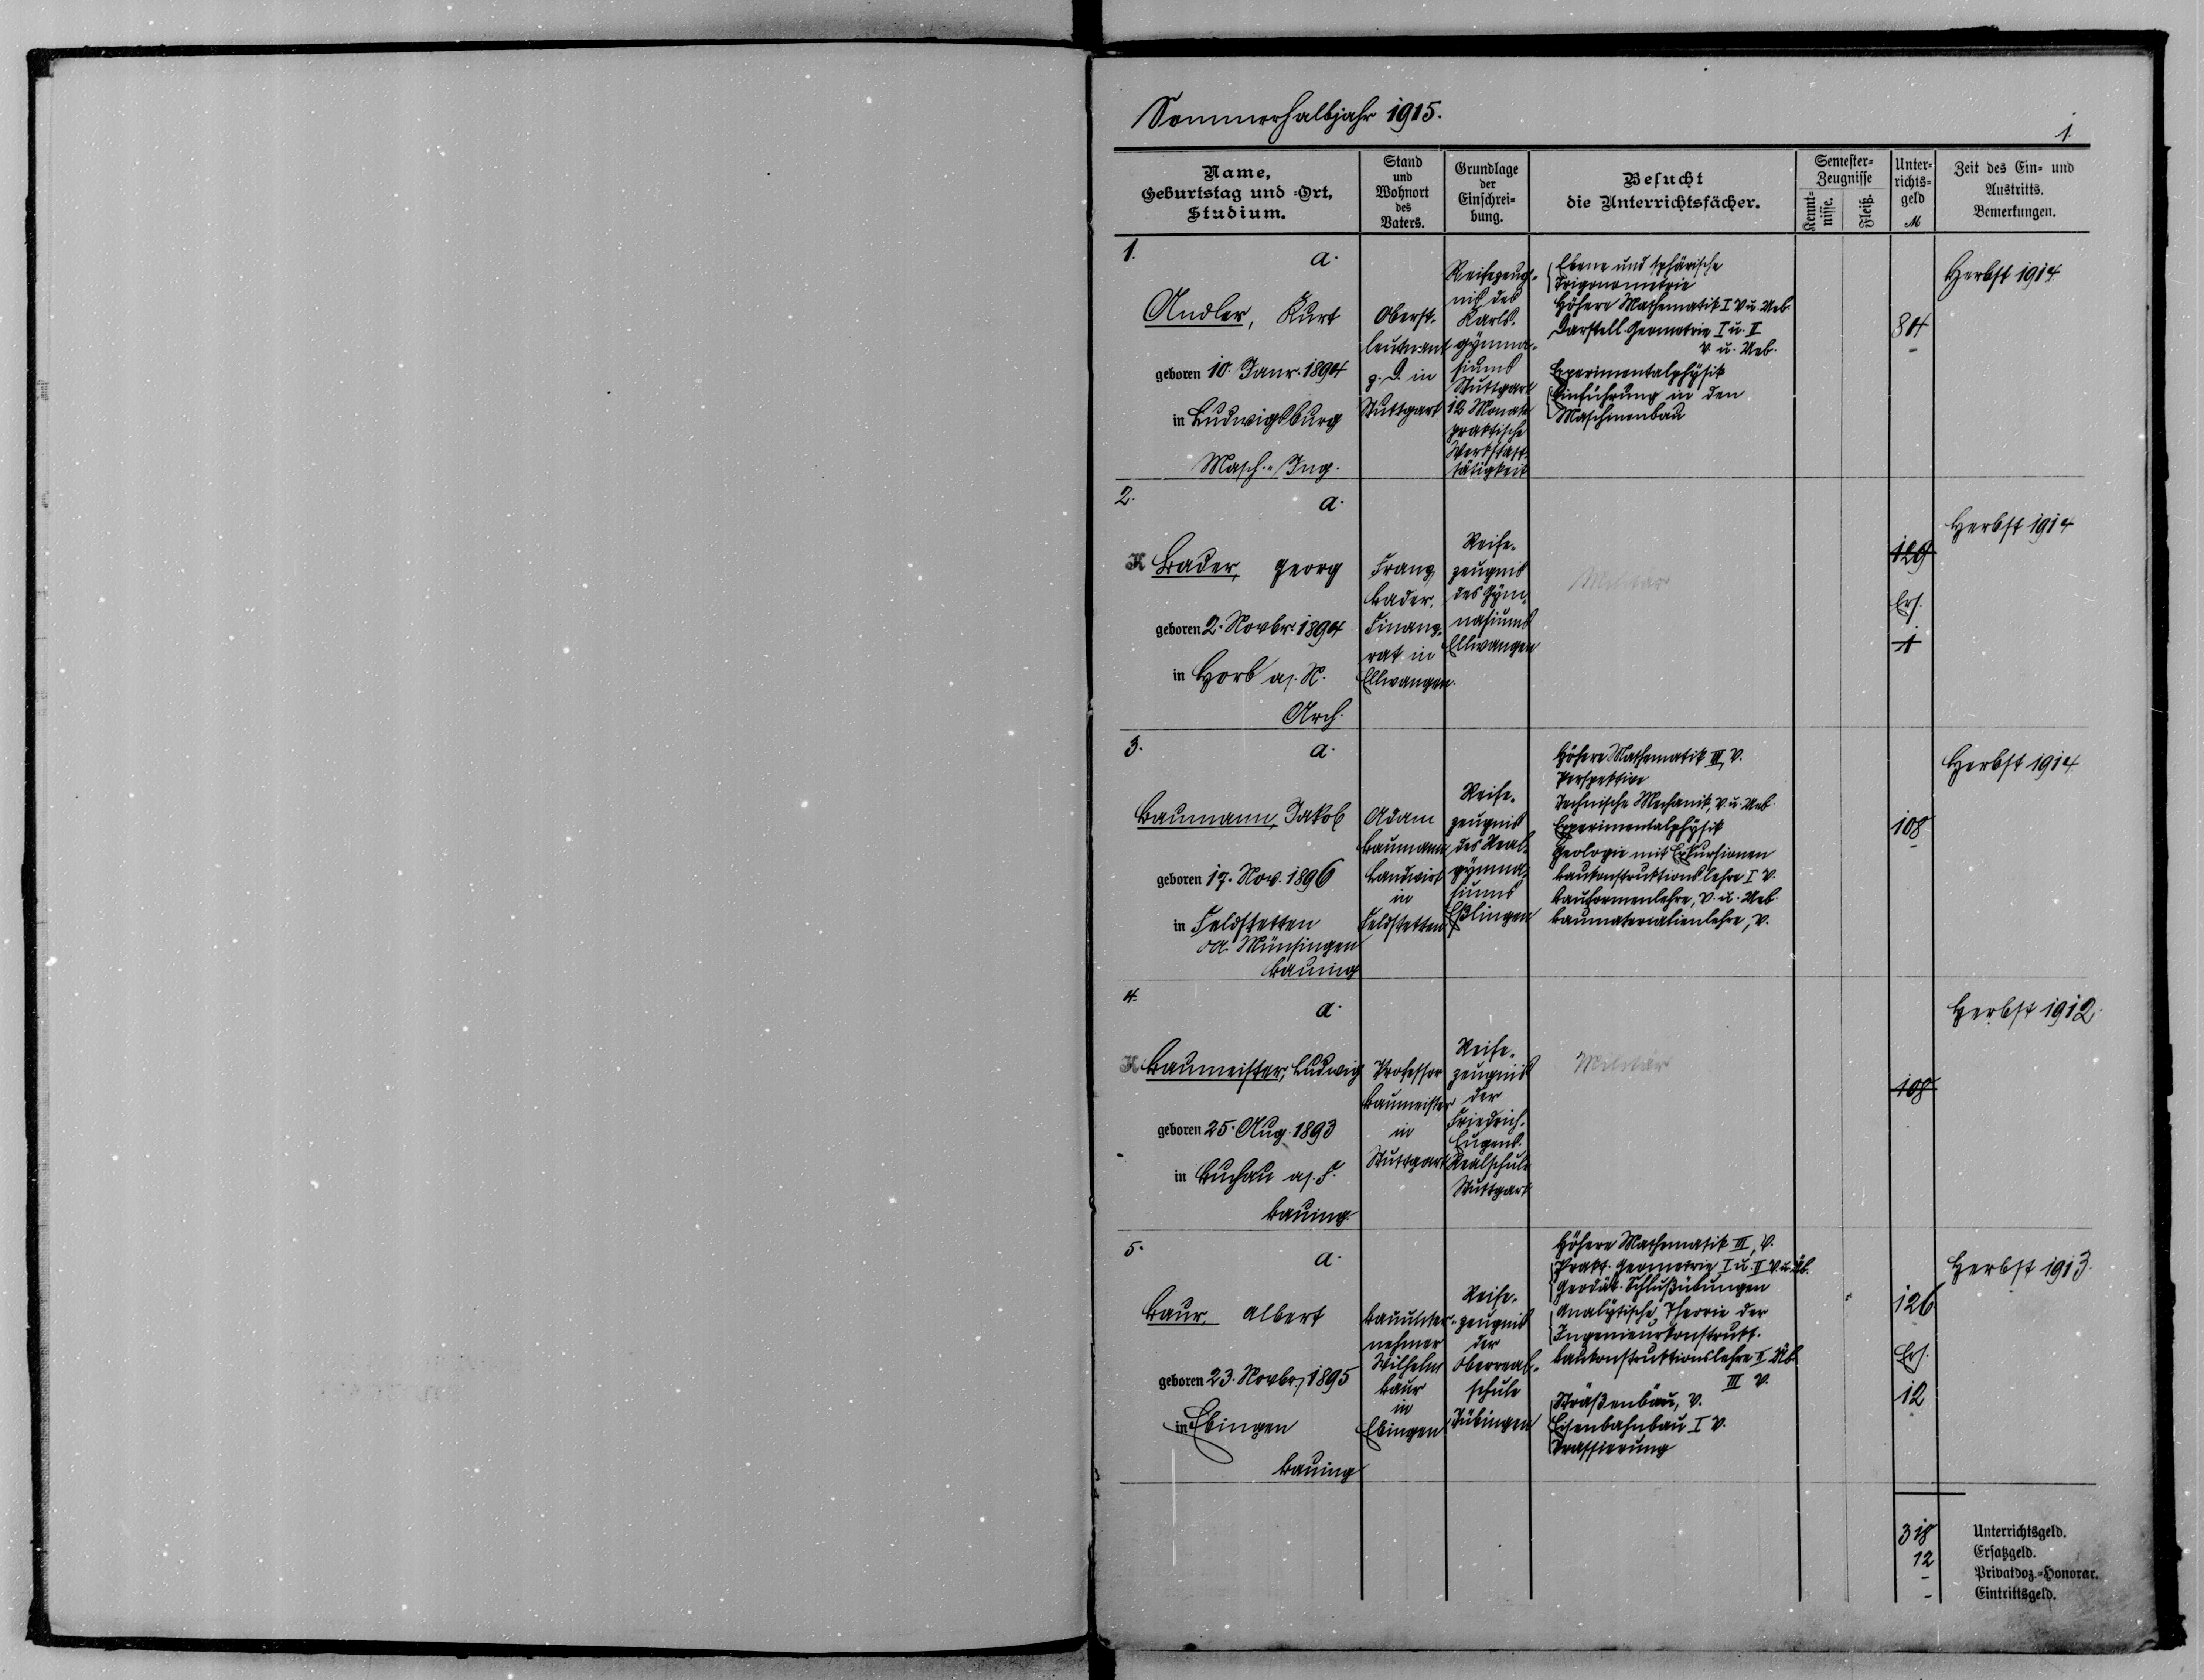 Sommerhalbjahr 1915.
1.
Name,
Geburtstag und -Ort,
Studium.
Stand
und
Wohnort
des
Vaters.
Grundlage
der
Einschrei-
bung.
Besucht
die Unterrichtsfächer.
Semester-
Zeugnisse
Kennt-
nisse.
Fleiß.
Unter-
richts-
geld
M
Zeit des Ein- und
Austritts.
Bemerkungen.
1.
a.
Andler, Kurt
geboren 10. Janr. 1894
in Ludwigsburg
Masch.-Ing.
Oberst-
leutnant
z. D. in
Stuttgart
Reifezeug-
nis des
Karls-
gymna-
siums
Stuttgart
12 Monate
praktische
Werkstatt-
tätigkeit
Ebene und sphärische
Trigonometrie
Höhere Mathematik I V. u. Ueb.
Darstell. Geometrie I u. II
V. u. Ueb.
Experimentalphysik
Einführung in den
Maschinenbau
84
-
Herbst 1914
2.
a.
K Bader, Georg
geboren 2. Novbr. 1894
in Horb a/. N.
Arch.
Franz
Bader,
Finanz-
rat in
Ellwangen.
Reife-
zeugnis
des Gym-
nasiums
Ellwangen
Militär
129
Ers.
1
Herbst 1914
3.
a.
Baumann, Jakob
geboren 17. Nov. 1896
in Feldstetten
OA. Münsingen
Bauing
Adam
Baumann
Landwirt
in
Feldstetten
Reife-
zeugnis
des Real-
gymna-
siums
Eßlingen
Höhere Mathematik III, V.
Perspektive
Technische Mechanik, V. u. Ueb.
Experimentalphysik
Geologie mit Exkursionen
Baukonstruktionslehre I V.
Bauformenlehre, V. u. Ueb.
Baumaterialienlehre, V.
108
-
Herbst 1914
4.
a.
K Baumeister, Ludwig
geboren 25. Aug. 1893
in Buchau a/. F.
Bauing.
Professor
Baumeister
in
Stuttgart
Reife-
zeugnis
der
Friedrich-
Eugens-
Realschule
Stuttgart
Militär
108
Herbst 1912.
5.
a.
Baur, Albert
geboren 23. Novbr. 1895
in Ebingen
Bauing
Bauunter-
nehmer
Wilhelm
Baur
in
Ebingen
Reife-
zeugnis
der
Oberreal-
schule
Tübingen
Höhere Mathematik III, V.
Prakt. Geometrie I u. II V. u. Üb.
Geodät. Schlußübungen
Analytische Theorie der
Ingenieurkonstrukt.
Baukonstruktionslehre II Üb.
III V.
Straßenbau, V.
Eisenbahnbau I V.
Trassierung
126
Ers.
12
Herbst 1913.
318 Unterrichtsgeld.
12 Ersatzgeld.
- Privatdoz.-Honorar.
- Eintrittsgeld.